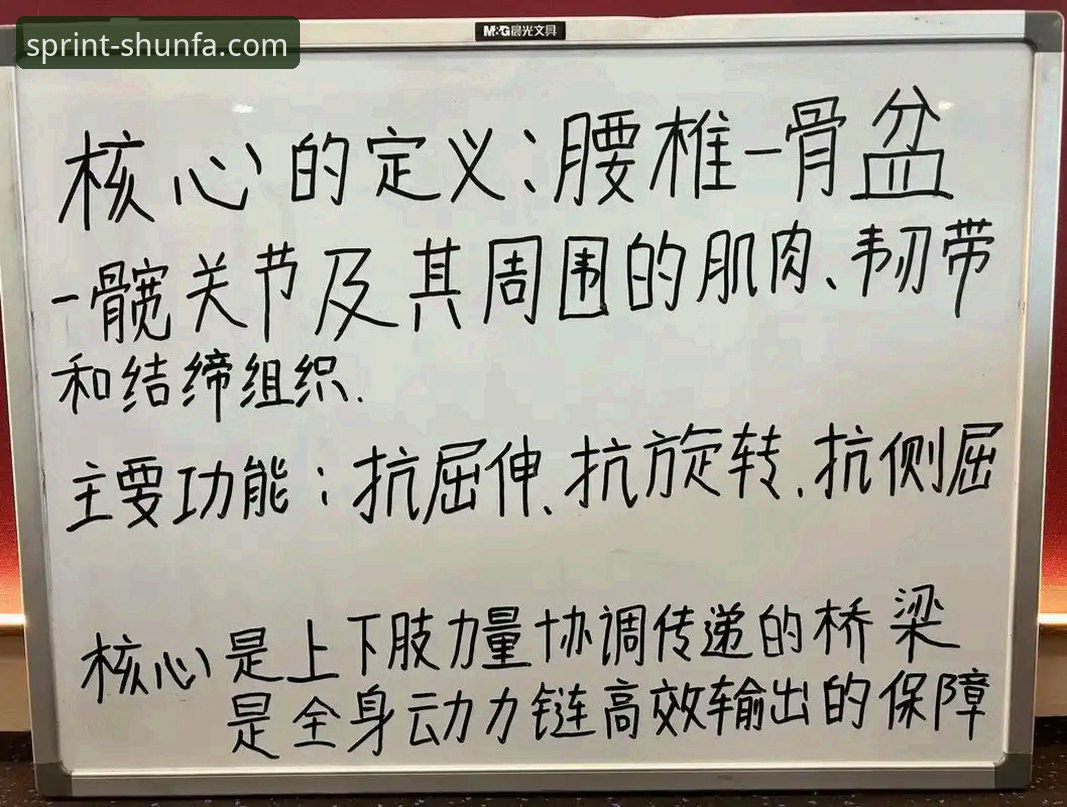 sprint-shunfa.com
M&G晨光文具
核心的定义:腰椎一骨盆
一髋关节及其周围的肌肉、韧带
和结缔组织.
主要功能:抗屈伸、抗旋转、抗侧屈
核心是上下肢力量协调传递的桥梁
是全身动力链高效输出的保障